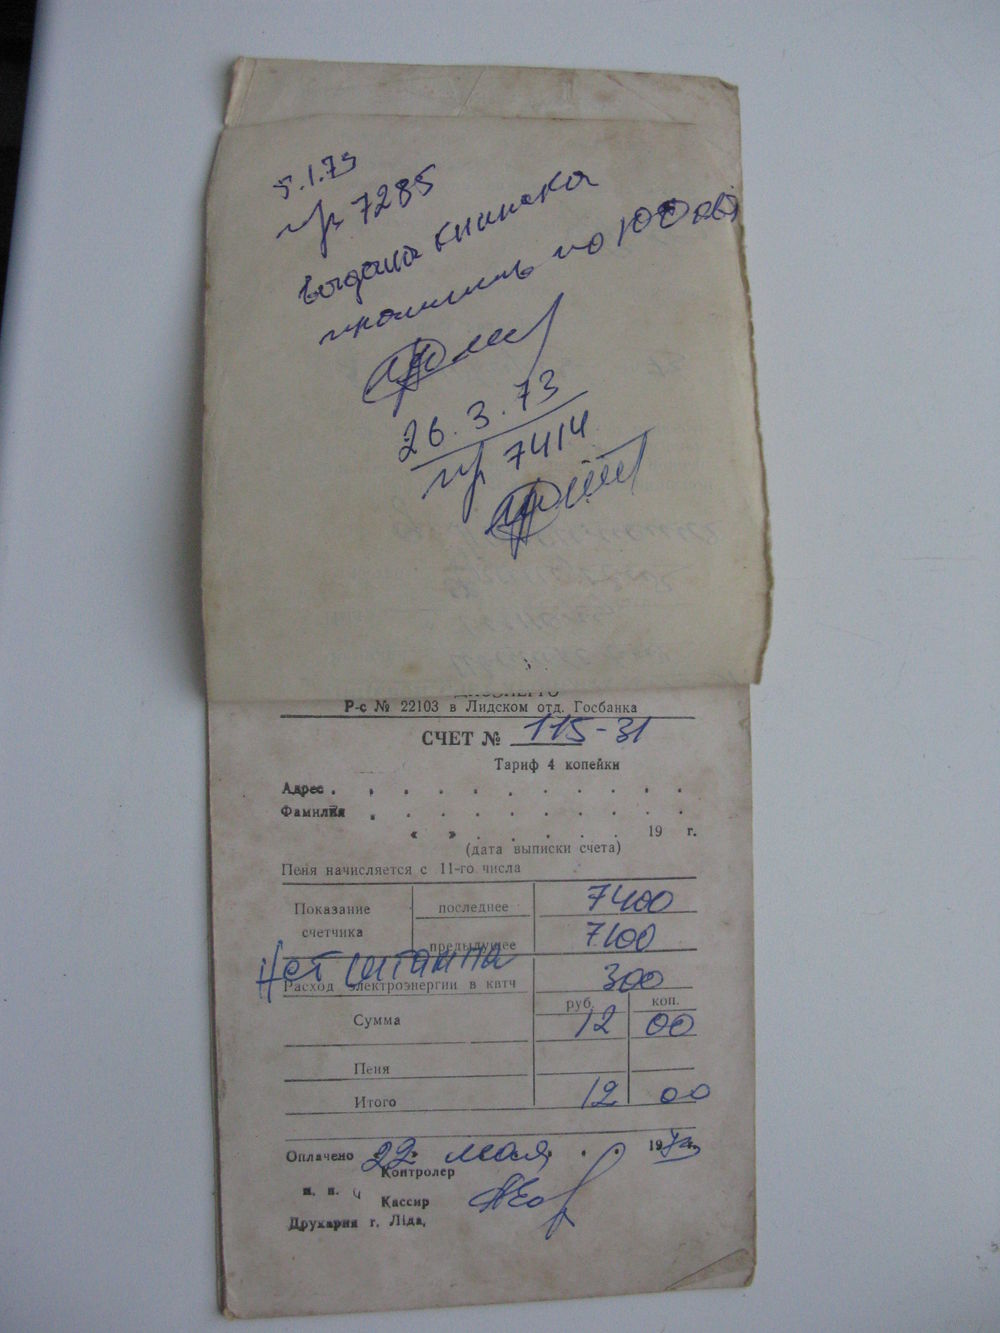 5.1.73
пр 7285
выдана книжка
по
26.3.73
пр 7414
Р-с № 22103 в Лидском отд. Госбанка
СЧЕТ № 115-31
Тариф 4 копейки
Адрес . . . . . . . . . . .
Фамилия . . . . . . . . . .
« » . . . . . 19 г.
(дата выписки счета)
Пеня начисляется с 11-го числа
Показание счетчика
последнее 7400
предыдущее 7100
Нет штампа
Расход электроэнергии в квтч 300
руб. коп.
Сумма 12 00
Пеня
Итого 12 00
Оплачено «22» мая 1973 г.
Контролер
м. п.
Кассир
Друкарня г. Ліда,